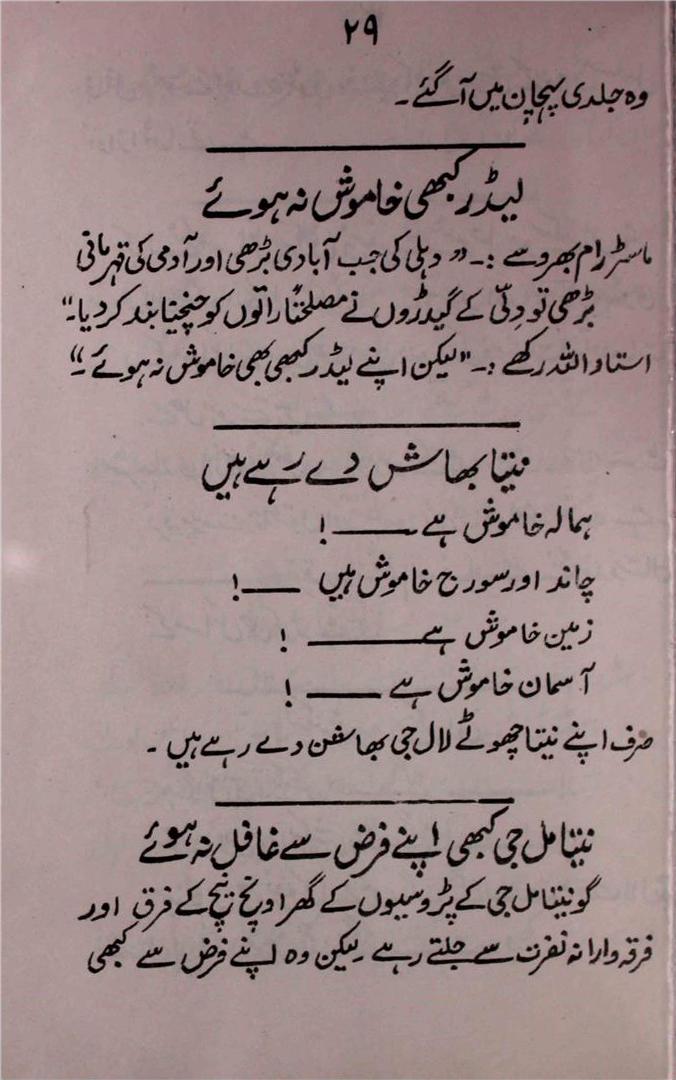 ۲۹
وہ جلدی پہچان میں آ گئے۔
لیڈر کبھی خاموش نہ ہوئے
ماسٹر رام بھروسے :۔ "دہلی کی جب آبادی بڑھی اور آدمی کی قہرمانی
بڑھی تو دلّی کے گیدڑوں نے مصلحتاً راتوں کو چیخنا بند کر دیا۔"
استاد اللہ رکھے :۔ "لیکن اپنے لیڈر کبھی بھی خاموش نہ ہوئے۔"
نیتا بھاشن دے رہے ہیں
ہمالہ خاموش ہے ——— !
چاند اور سورج خاموش ہیں ——— !
زمین خاموش ہے ——— !
آسمان خاموش ہے ——— !
صرف اپنے نیتا چھوٹے لال جی بھاشن دے رہے ہیں۔
نیتا مل جی کبھی اپنے فرض سے غافل نہ ہوئے
گو نیتا مل جی کے پڑوسیوں کے گھر اونچ نیچ کے فرق اور
فرقہ وارانہ نفرت سے جلتے رہے۔ لیکن وہ اپنے فرض سے کبھی